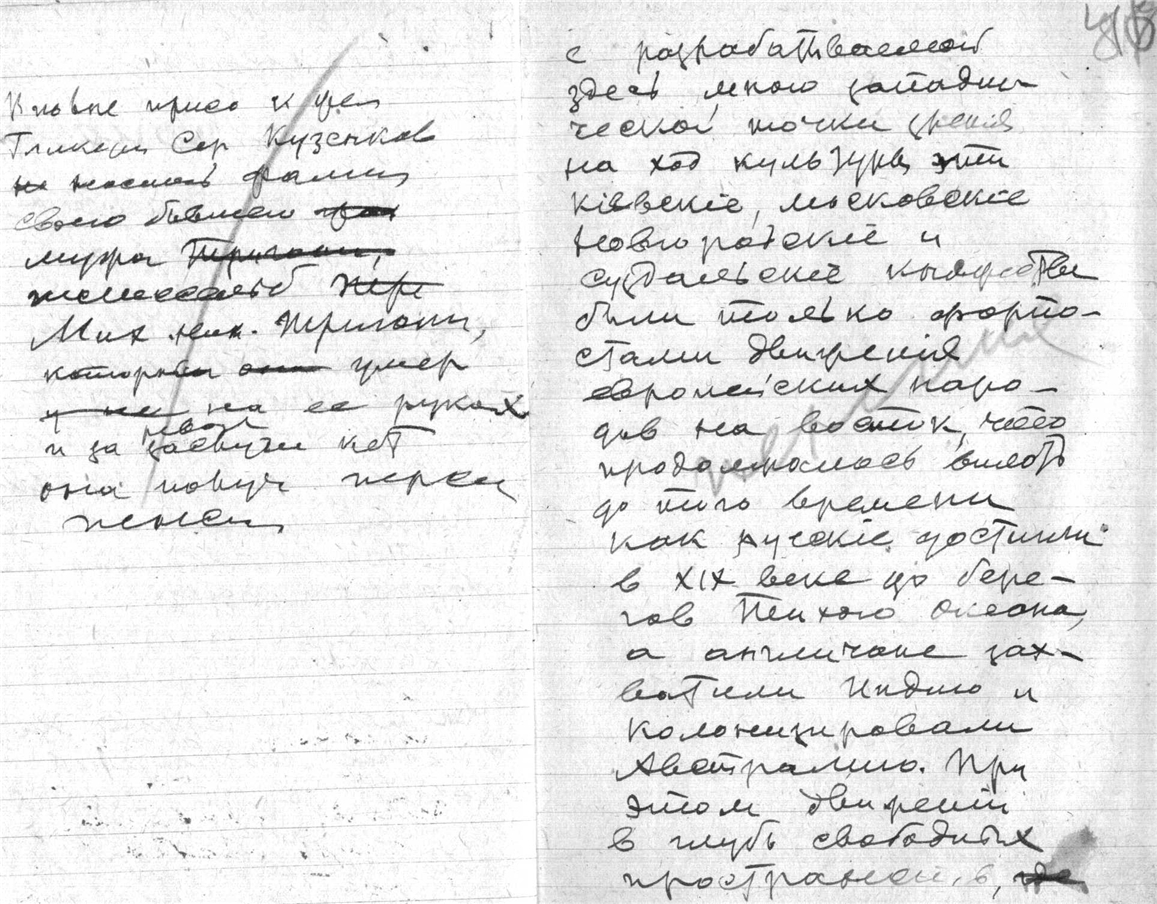 Кповне присо к
Сер Кузенков
носить
своего бывшего
мужа
Мих. Ник. Тригони,
который умер
на ее руках
и за нет
она
с разрабатываемой
здесь мною западни-
ческой точки зрения
на ход культуры эти
кіевскіе, московскіе
новгородскіе и
суздальскіе княжества
были только форпо-
стами движения
европейских наро-
дов на восток, что
продолжалось вплоть
до того времени
как русскіе достигли
в XIX веке до бере-
гов Тихого океана,
а англичане зах-
ватили Индию и
колонизировали
Австралию. При
этом движении
в глубь свободных